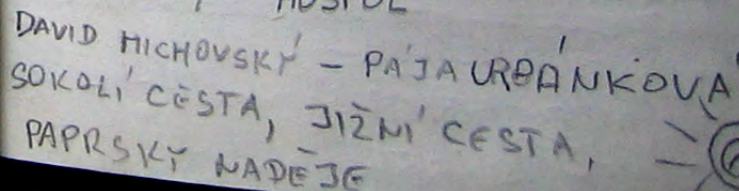 DAVID MICHOVSKÝ – PÁJA URBÁNKOVÁ
SOKOLÍ CESTA, JIŽNÍ CESTA,
PAPRSKY NADĚJE